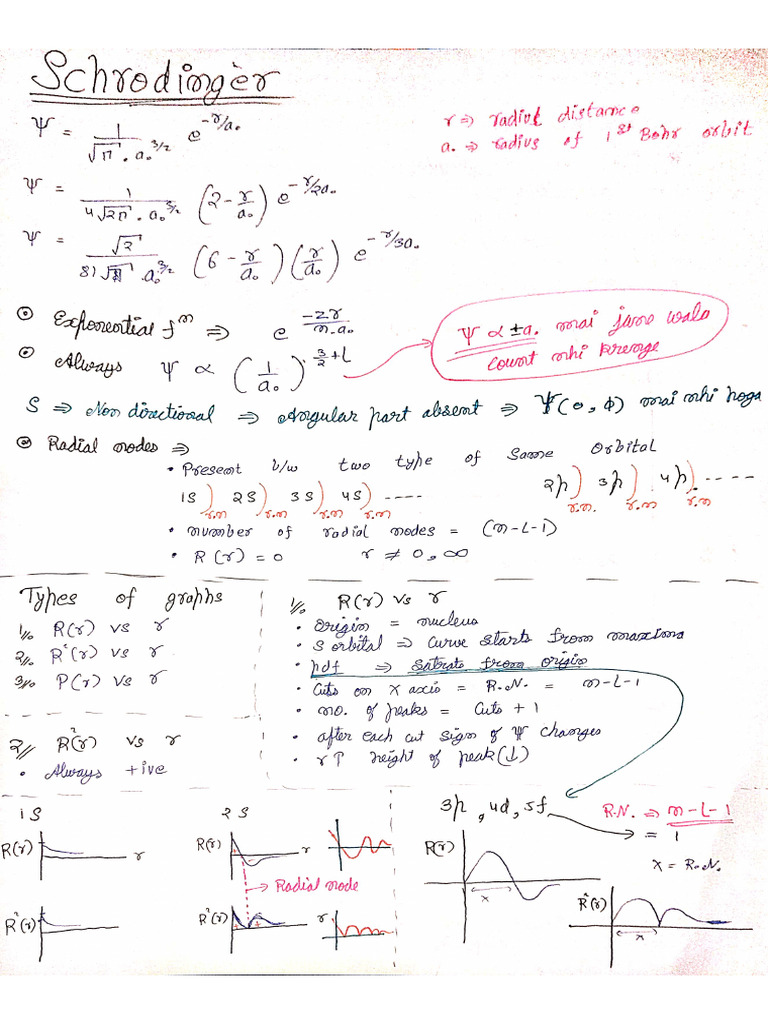 Schrodinger
Ψ = 1/(√π · a₀^3/2) e^-r/a₀
r => radial distance
a₀ => radius of 1st Bohr orbit
Ψ = 1/(4√2π · a₀^3/2) (2 - r/a₀) e^-r/2a₀
Ψ = √2/(81√π · a₀^3/2) (6 - r/a₀) (r/a₀) e^-r/3a₀
Exponential fⁿ => e^(-zr/n·a₀)
Always Ψ ∝ (1/a₀)^(3/2 + L)
Ψ ∝ ±a₀ mai jane wala
count nhi krenge
S => Non directional => Angular part absent => Ψ(θ, ϕ) mai nhi hoga
Radial nodes =>
• Present b/w two type of Same Orbital
1s) 2s) 3s) 4s) ---- 2p) 3p) 4p) ----
r.n r.n r.n r.n r.n. r.n r.n
• number of radial nodes = (n-L-1)
• R(r) = 0 r ≠ 0, ∞
Types of graphs
1% R(r) vs r
2% R²(r) vs r
3% P(r) vs r
1% R(r) vs r
• origin = nucleus
• S orbital => Curve starts from maxima
• pdf => Satrats from origin
• Cuts on X axis = R.N. = n-L-1
• no. of peaks = Cuts + 1
• after each cut sign of Ψ changes
• r↑ height of peak (↓)
2// R²(r) vs r
• Always +ive
1S
R(r) r
R²(r)
2S
R(r) r
→ Radial node
R²(r) r
+ +
3p, 4d, 5f
R.N. => n-L-1
= 1
x = R.N.
R(r)
x
R²(r)
x